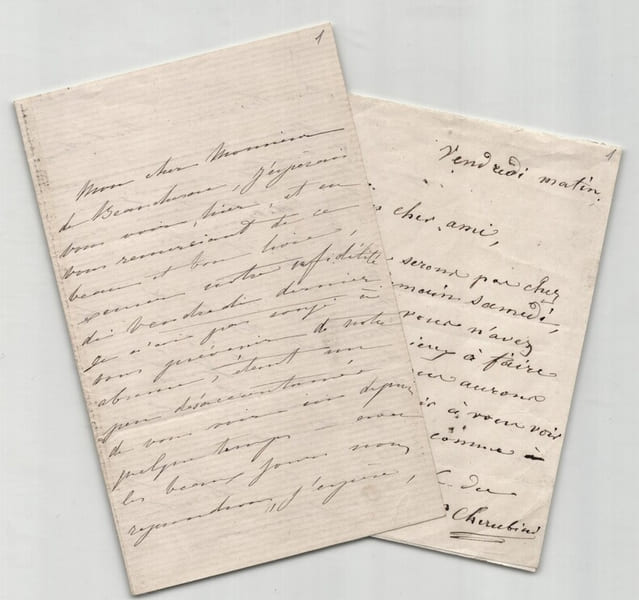 1
Mon cher Monsieur
de Beauchesne, j'esperais
vous voir, hier, et en
vous remerciant de ce
beau et bon livre,
excuser notre infidélité
de Vendredi dernier
je n'ai pas songé à
vous prévenir de notre
absence, étant un
peu désaccoutumé
de vous voir ici depuis
quelque temps – avec
les beaux jours nous
reprendrons, j'espère,
1
Vendredi matin.
cher ami,
serons pas chez
samedi,
vous n'avez
à faire
aurons
à vous voir
comme à
Cherubini